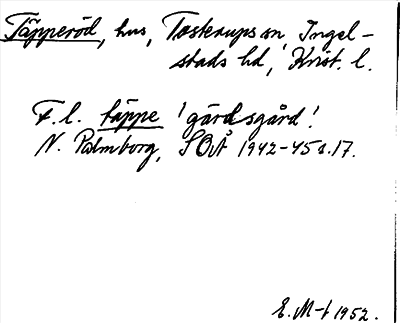 Täpperöd, hus, Tosterups sn Ingel-
stads hd, Krist. l.
F. l. täppe 'gärdsgård'.
N. Palmborg, SOÅ 1942-45 s. 17.
E. M-t 1952.